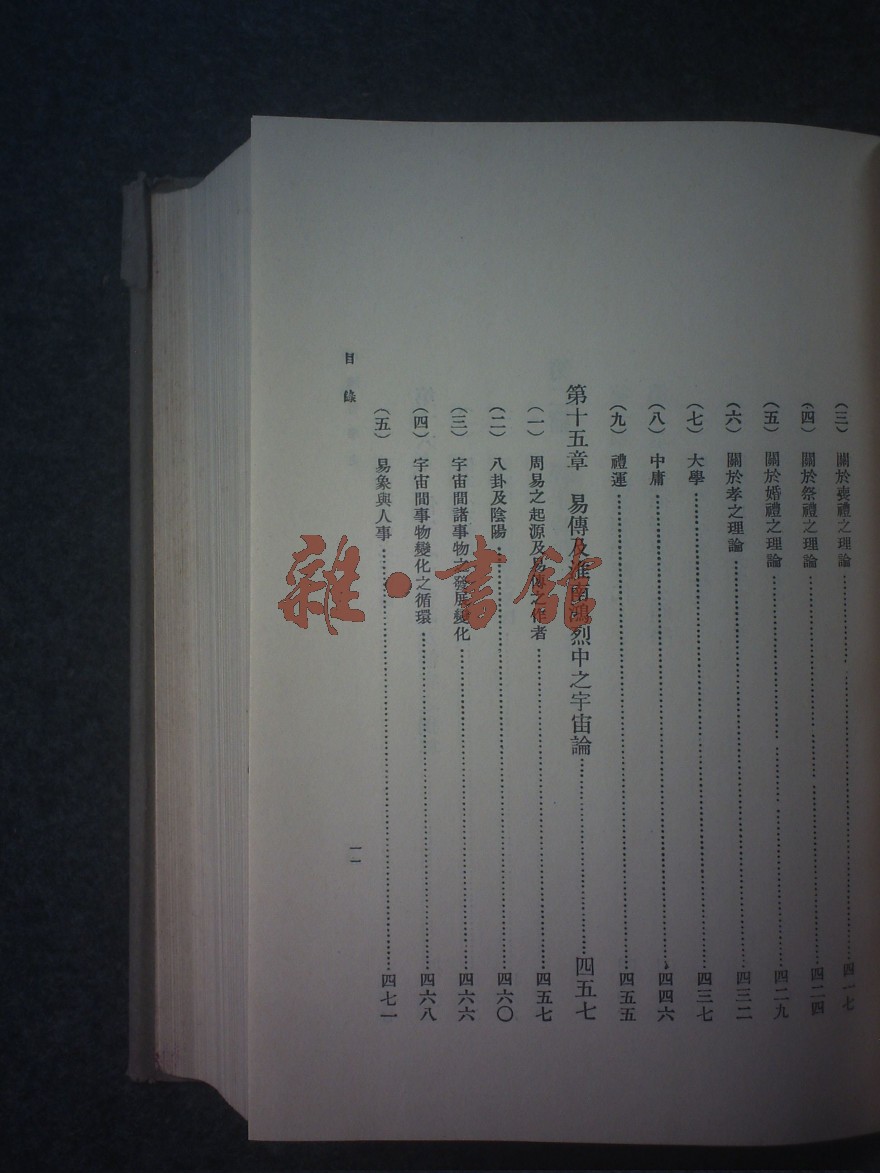 （三）　關於喪禮之理論…………四一七
（四）　關於祭禮之理論…………四二四
（五）　關於婚禮之理論…………四二九
（六）　關於孝之理論…………四三二
（七）　大學…………四三七
（八）　中庸…………四四六
（九）　禮運…………四五五
第十五章　易傳及淮南鴻烈中之宇宙論…………四五七
（一）　周易之起源及易傳之作者…………四五七
（二）　八卦及陰陽…………四六〇
（三）　宇宙間諸事物之發展變化…………四六六
（四）　宇宙間事物變化之循環…………四六八
（五）　易象與人事…………四七一
目錄　一一
雜·書館